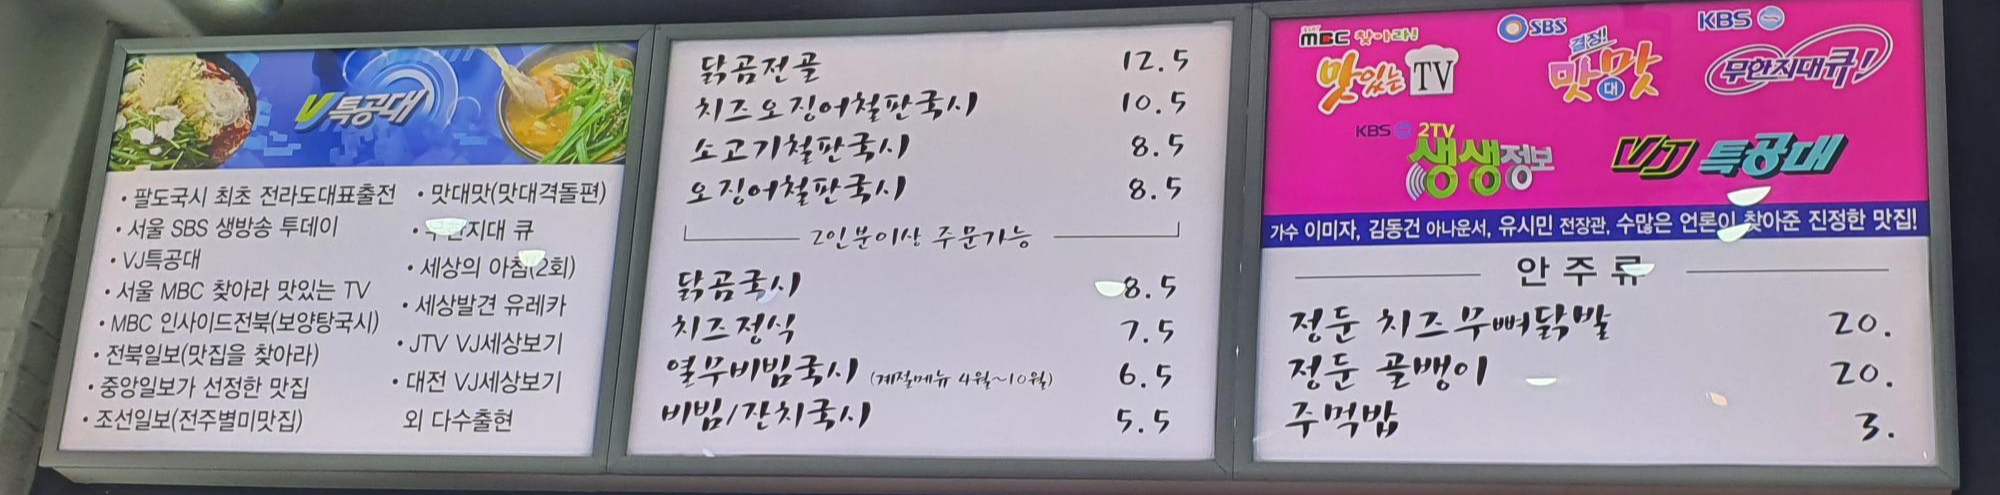 V 특공대
• 팔도국시 최초 전라도대표출전
• 서울 SBS 생방송 투데이
• VJ특공대
• 서울 MBC 찾아라 맛있는 TV
• MBC 인사이드전북(보양탕국시)
• 전북일보(맛집을 찾아라)
• 중앙일보가 선정한 맛집
• 조선일보(전주별미맛집)
• 맛대맛(맛대격돌편)
• 무한지대 큐
• 세상의 아침(2회)
• 세상발견 유레카
• JTV VJ세상보기
• 대전 VJ세상보기
외 다수출현
닭곰전골 12.5
치즈오징어철판국시 10.5
소고기철판국시 8.5
오징어철판국시 8.5
2인분이상 주문가능
닭곰국시 8.5
치즈정식 7.5
열무비빔국시 (계절메뉴 4월~10월) 6.5
비빔/잔치국시 5.5
MBC 찾아라!
맛있는 TV
SBS
결정!
맛대맛
KBS
무한지대큐!
KBS 2TV
생생정보
VJ 특공대
가수 이미자, 김동건 아나운서, 유시민 전장관, 수많은 언론이 찾아준 진정한 맛집!
안주류
정든 치즈무뼈닭발 20.
정든 골뱅이 20.
주먹밥 3.